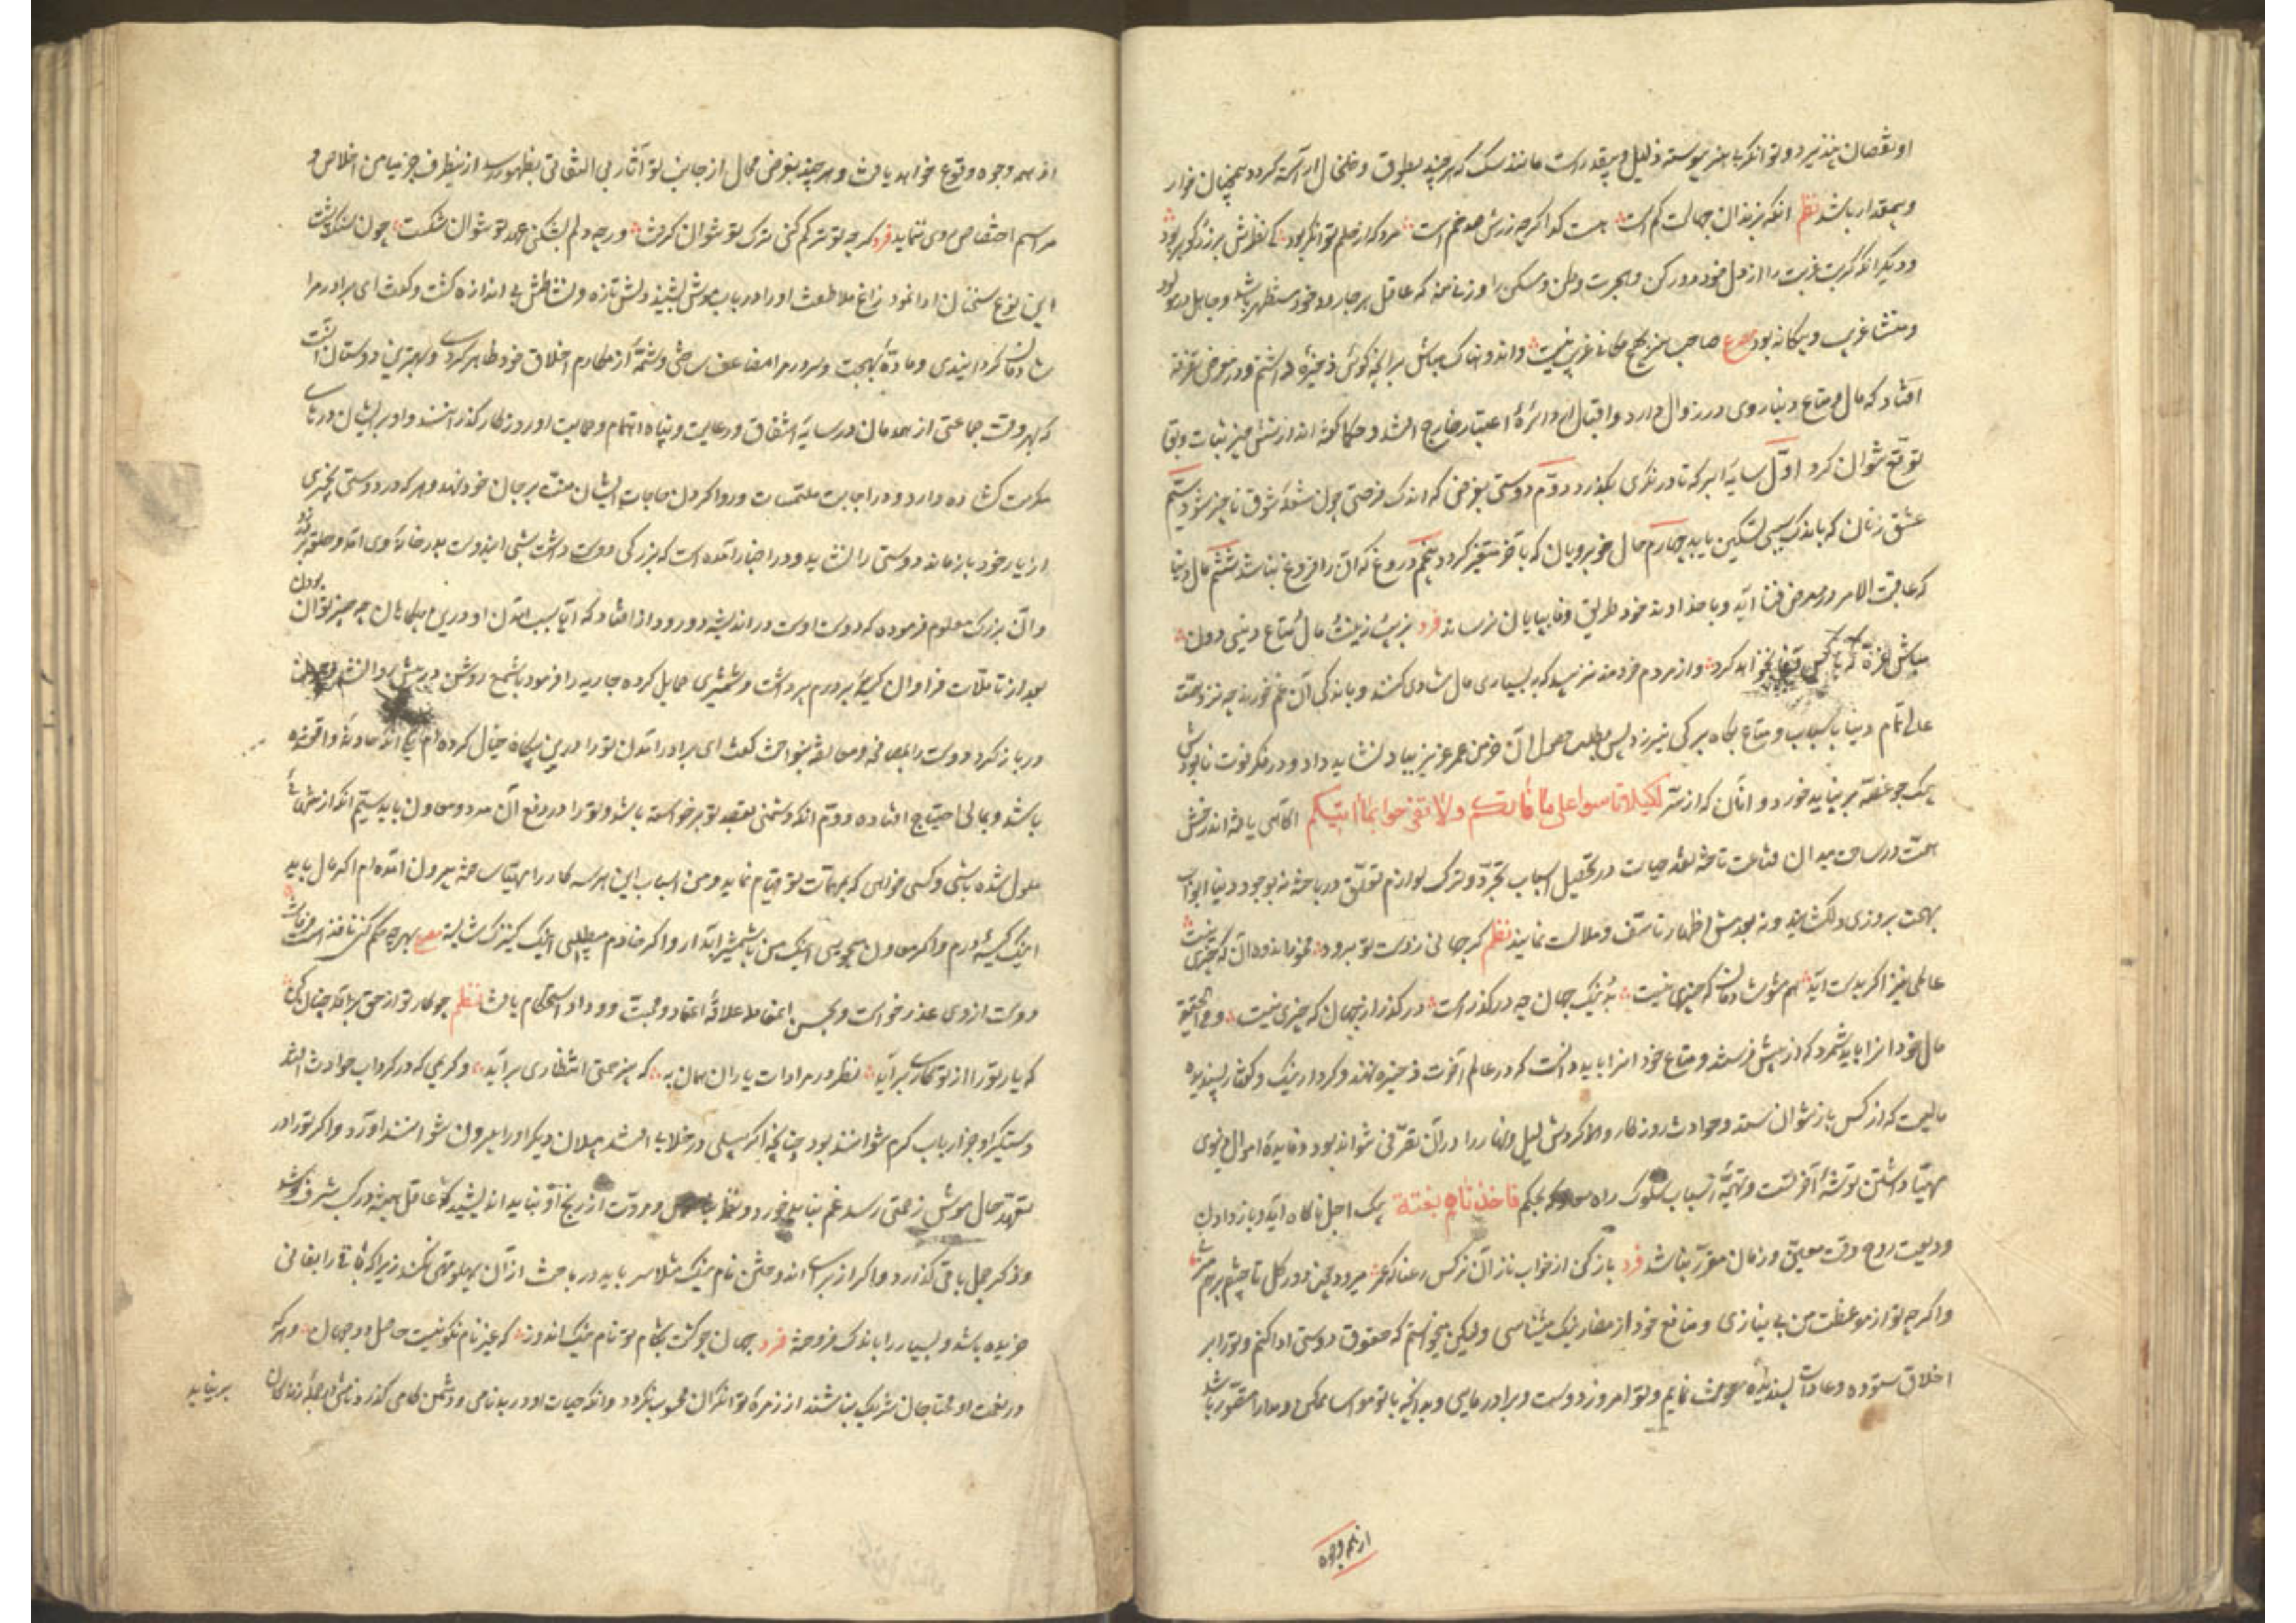 او نقصان پذیرد و توانگر بی هنر پیوسته ذلیل و بیقدرست مانند سگ که هر چند بطوق و خلخال آراسته گردد همچنان خوار
و بیمقدار باشد نظم انکه بزندان جهالت کم است هست گدا گرچه زرش صد خم است مرد که از علم توانگر بود کی نظرش بر زر و گوهر بود
و دیگر انکه کربت غربت را از دل خود دور کن و هجرت وطن و مسکن را وزنی منه که عاقل هر جا رود بخود مستظهر باشد و جاهل در مولد
و منشا غریب و بیگانه بود مصرع صاحب هنر بهیچ مکانی غریب نیست و اندوهناک مباش برانچه گوئی ذخیره داشتم و در معرض تفرقه
افتاد که مال و متاع دنیا روی در زوال دارد و اقبال او از دائرهٔ اعتبار خارج باشد و حکما گفته اند از شش چیز ثبات و بقا
توقع نتوان کرد اول سایهٔ ابر که تا در نگری بگذرد دوم دوستی بغرض که اندک فرصتی چون شعلهٔ برق ناچیز شود سیم
عشق زنان که باندک سببی تسکین یابد چهارم جمال خوبرویان که بآخر متغیر گردد پنجم دروغ که انرا فروغ نباشد ششم مال دنیا
که عاقبت الامر در معرض فنا آید و با خداوند خود طریق وفا بپایان نرساند فرد بزیب و زینت مال و متاع دنیی دون
مباش غره که با کس وفا نخواهد کرد و از مردم خردمند نزیبد که به بسیاری مال شادی کنند و باندکی آن غم خورند چه نزد همت
عالی تمام دنیا باسباب و متاع بکاه برگی نیرزد پس بطلب حصول آن خرمن عمر عزیز بباد نشاید داد و در فکر فوت نابودش
یک جو غصه برنباید خورد و آنان که از سر لکیلا تاسوا علی ما فاتکم ولا تفرحوا بما آتیکم آگاهی یافته اند رخش
همت در ساحت میدان قناعت تاخته نقد حیات در تحصیل اسباب تجرد و ترک لوازم تعلق درباخته نه بوجود دنیا ابواب
بهجت بر روی دل گشایند و نه بعدمش اظهار تاسف و ملالت نمایند نظم گر جهانی ز دست تو برود مخور اندوه آن که چیزی نیست
عالمی نیز اگر بدست آید هم مشو شادمان که چیزی نیست بد و نیک جهان چو در گذرست در گذر از جهان که چیزی نیست و فی الحقیقة
مال خود انرا باید شمرد که از پیش فرستند و متاع خود انرا باید دانست که در عالم آخرت ذخیره نهند و کردار نیک و گفتار پسندیده
مالیست که از کس باز نتوان ستد و حوادث روزگار و گردش لیل و نهار را در آن تصرفی نتواند بود و فایدهٔ اموال دنیوی
مهیا داشتن توشهٔ آخرتست و تهیهٔ اسباب سلوک راه معاد که بحکم فاخذناهم بغتة پیک اجل ناگاه آید و بازدادن
ودیعت روح وقت معین و زمان مقرر نباشد فرد باز کن از خواب ناز آن نرگس رعنا که عمر میرود چندین که در گل تا چشم بر هم زنی
و اگرچه تو از موعظت من بی نیازی و منافع خود از مضار نیک میشناسی و لیکن میخواستم که حقوق دوستی ادا کنم و ترا بر
اخلاق ستوده و عادات پسندیده معونت نمایم و تو امروز دوست و برادر مایی و بهرانچه با تو مواسا ممکن و مدارا متصور باشد
از همه وجوه
از همه وجوه وقوع خواهد یافت و هر چند بفرض محال از جانب تو آثار بی التفاتی بظهور رسد از ینطرف جز میامن اخلاص و
مراسم اختصاص روی ننماید فرد گرچه تو ترکم کنی ترک تو نتوان گرفت ورچه دلم بشکنی عهد تو نتوان شکست چون سنگپشت
این نوع سخنان ادا نمود زاغ ملاطفت او را در باب موش بشنید دلش تازه و نشاطش بی اندازه گشت و گفت ای برادر مرا
شادمان گردانیدی و مادهٔ بهجت و سرور مرا مضاعف ساختی و شمهٔ از مکارم اخلاق خود ظاهر کردی و بهترین دوستان آنست
که بهر وقت جماعتی از همدمان در سایهٔ اشفاق و رعایت و پناه اهتمام و حمایت او روزگار گذرانند و او بر ایشان درهای
مکرمت گشاده دارد و در اجابت ملتمسات و روا کردن حاجات ایشان منت بر جان خود نهد و هر که در دوستی بچیزی
از یار خود باز ماند دوستی را نشاید و در اخبار آمده است که بزرگی دوستی داشت شبی این دوست بدر خانهٔ وی آمد و حلقه بر در زد
و آن بزرگ معلوم فرموده که دوست اوست در اندیشهٔ دور و دراز افتاد که آیا سبب آمدن او درین بیگاهان چه چیز تواند بودن
بعد از تاملات فراوان کیسهٔ پر درم برداشت و شمشیری حمایل کرده جاریه را فرمود تا شمع روشن در پیش
در باز کرد و دوست را بمصافحه و معانقه بنواخت گفت ای برادر آمدن تو را درین بیگاه خیال کرده ام یکی انکه حادثهٔ واقع شده
باشد و بمالی احتیاج افتاده دوم انکه دشمنی بقصد تو برخواسته باشد و تو را در دفع آن مدد و معاون باید سیم انکه از تنهائی
ملول شده باشی و کسی خواهی که بمهمات تو قیام نماید و من اسباب این هر سه کار را مهیا ساخته بیرون آمده ام اگر مال باید
اینک کیسهٔ درم و اگر معاون میجویی اینک من با شمشیر آبدار و اگر خادم میطلبی اینک کنیزک شایسته مصرع بهر چه حکم کنی نافذ است فرمانت
دوست از وی عذر خواست و بحسن اعتقاد علاقهٔ اعتماد و محبت و وداد استحکام یافت نظم چو کار تو از حق برآید چنان کن
که یار تو را از تو کاری برآید نظر در مرادات یاران همان به که بی زحمت انتظاری برآید و کریمی که در گرداب حوادث افتد
دستگیر او جز ارباب کرم نتوانند بود چنانچه اگر پیلی در خلاب افتد پیلان دیگر او را بیرون توانند آورد و اگر تو را در
تعهد حال موش زحمتی رسد غم نباید خورد و و مروت از رنج آن نباید اندیشید که عاقل همیشه در کسب شرف کوشد
و ذکر جمیل باقی گذارد و اگر از برای اندوختن نام نیک مثلا سر باید درباخت از آن پهلو تهی نکند زیرا که باقی را بفانی
خریده باشد و بسیار را باندک فروخته فرد جهان چو گشت بکام تو نام نیک اندوز که غیر نام نکو نیست حاصل از جهان و هر که
در نعمت او محتاجان شریک نباشند از زمرهٔ توانگران محسوب نگردد و انکه حیات او در بدنامی و دشمن کامی گذرد نامش در جملهٔ زندگان
برنیاید